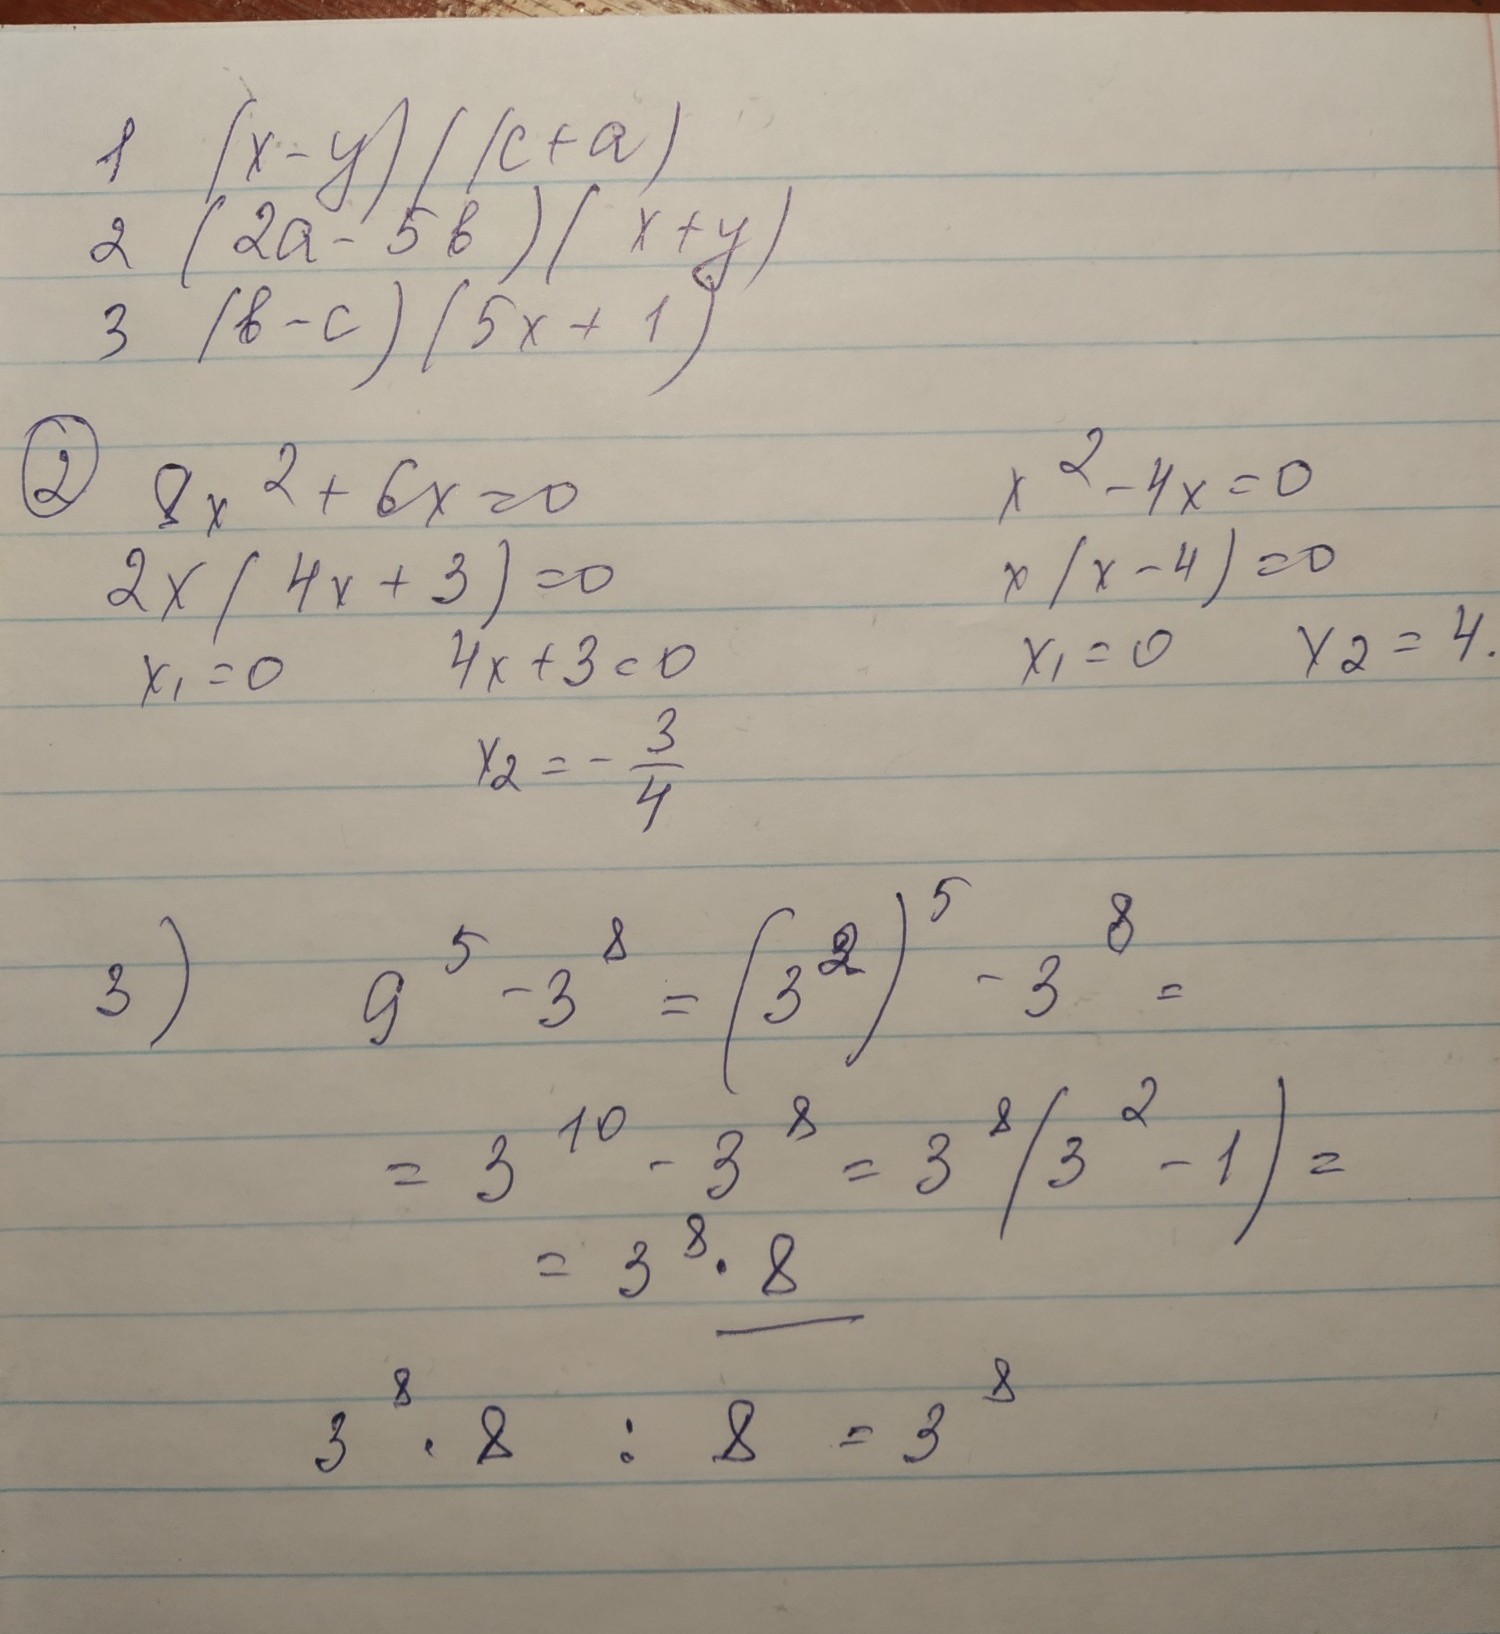 1 (x-y)((c+a)
2 (2a-5b)(x+y)
3 (b-c)(5x+1)
2 8x²+6x=0
2x(4x+3)=0
x₁=0 4x+3=0
x₂=-3/4
x²-4x=0
x(x-4)=0
x₁=0 x₂=4.
3) 9⁵-3⁸=(3²)⁵-3⁸=
=3¹⁰-3⁸=3⁸(3²-1)=
=3⁸·8
3⁸·8 : 8 =3⁸